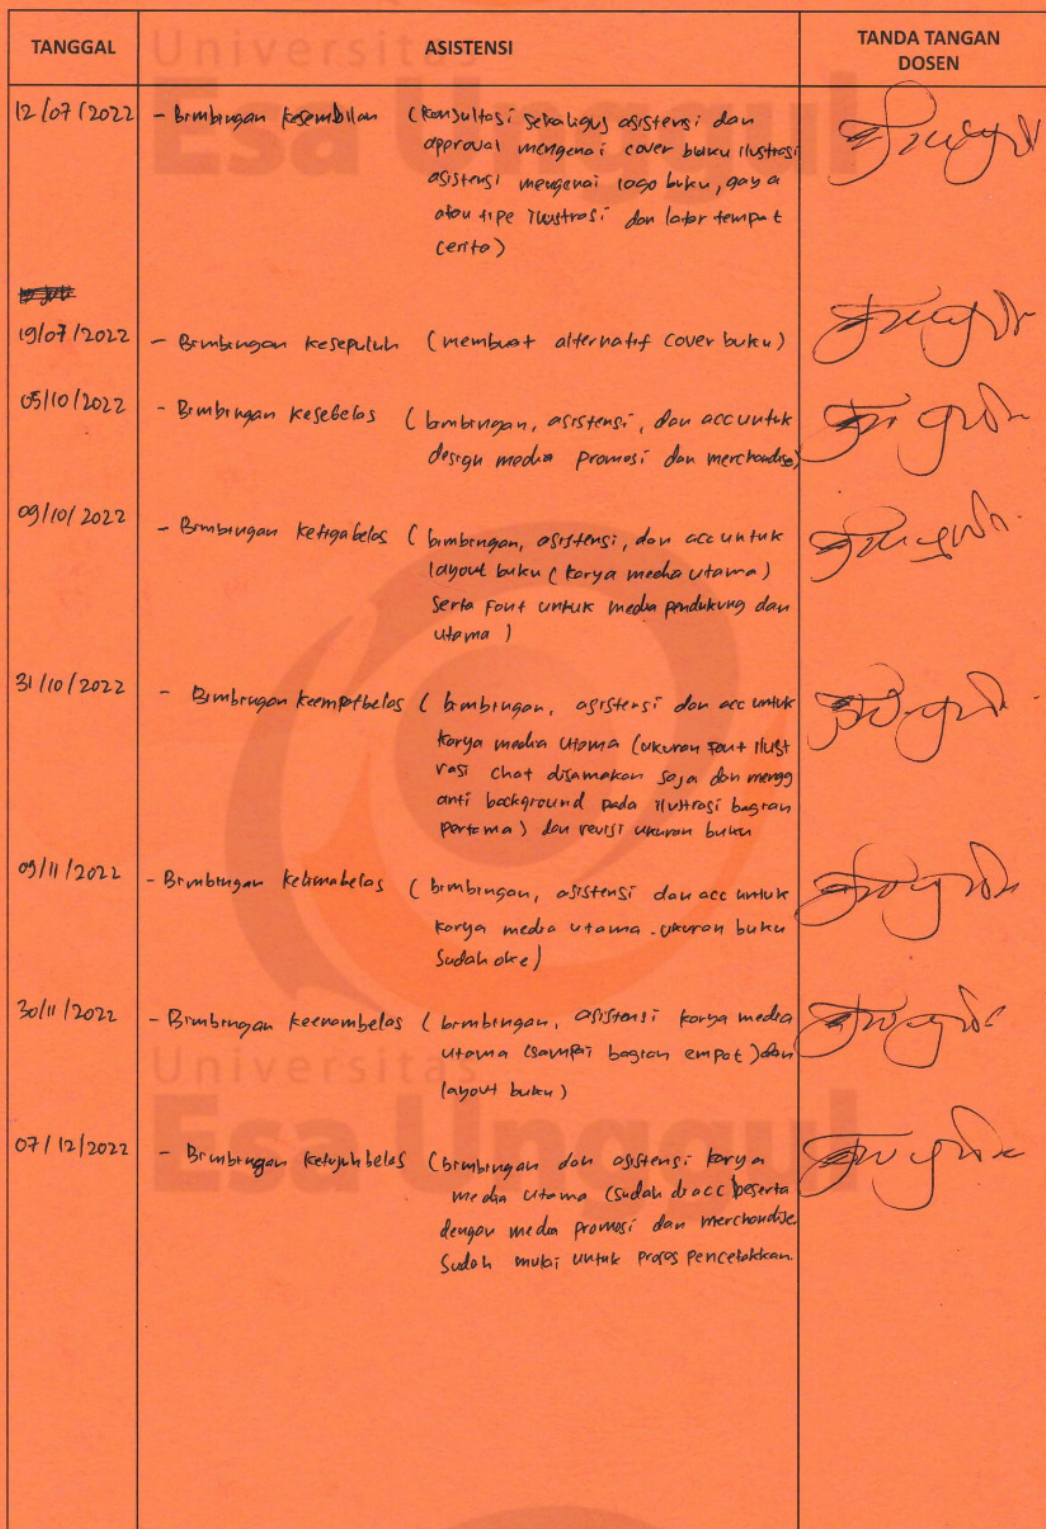 Universitas
Esa Unggul
TANGGAL
ASISTENSI
TANDA TANGAN
DOSEN
12/07/2022 - Bimbingan kesembilan (konsultasi sekaligus asistensi dan
approval mengenai cover buku ilustrasi
asistensi mengenai logo buku, gaya
atau tipe ilustrasi dan latar tempat
cerita)
19/07/2022 - Bimbingan kesepuluh (membuat alternatif cover buku)
05/10/2022 - Bimbingan kesebelas (bimbingan, asistensi, dan acc untuk
design media promosi dan merchandise)
09/10/2022 - Bimbingan ketigabelas (bimbingan, asistensi, dan acc untuk
layout buku (karya media utama)
serta font untuk media pendukung dan
utama)
31/10/2022 - Bimbingan keempatbelas (bimbingan, asistensi dan acc untuk
karya media utama (ukuran font ilust
rasi chat disamakan saja dan mengg
anti background pada ilustrasi bagian
pertama) dan revisi ukuran buku
09/11/2022 - Bimbingan kelimabelas (bimbingan, asistensi dan acc untuk
karya media utama. ukuran buku
sudah oke)
30/11/2022 - Bimbingan keenambelas (bimbingan, asistensi karya media
utama (sampai bagian empat) dan
layout buku)
Universitas
Esa Unggul
07/12/2022 - Bimbingan ketujuhbelas (bimbingan dan asistensi karya
media utama (sudah diacc) beserta
dengan media promosi dan merchandise.
Sudah mulai untuk proses pencetakkan.